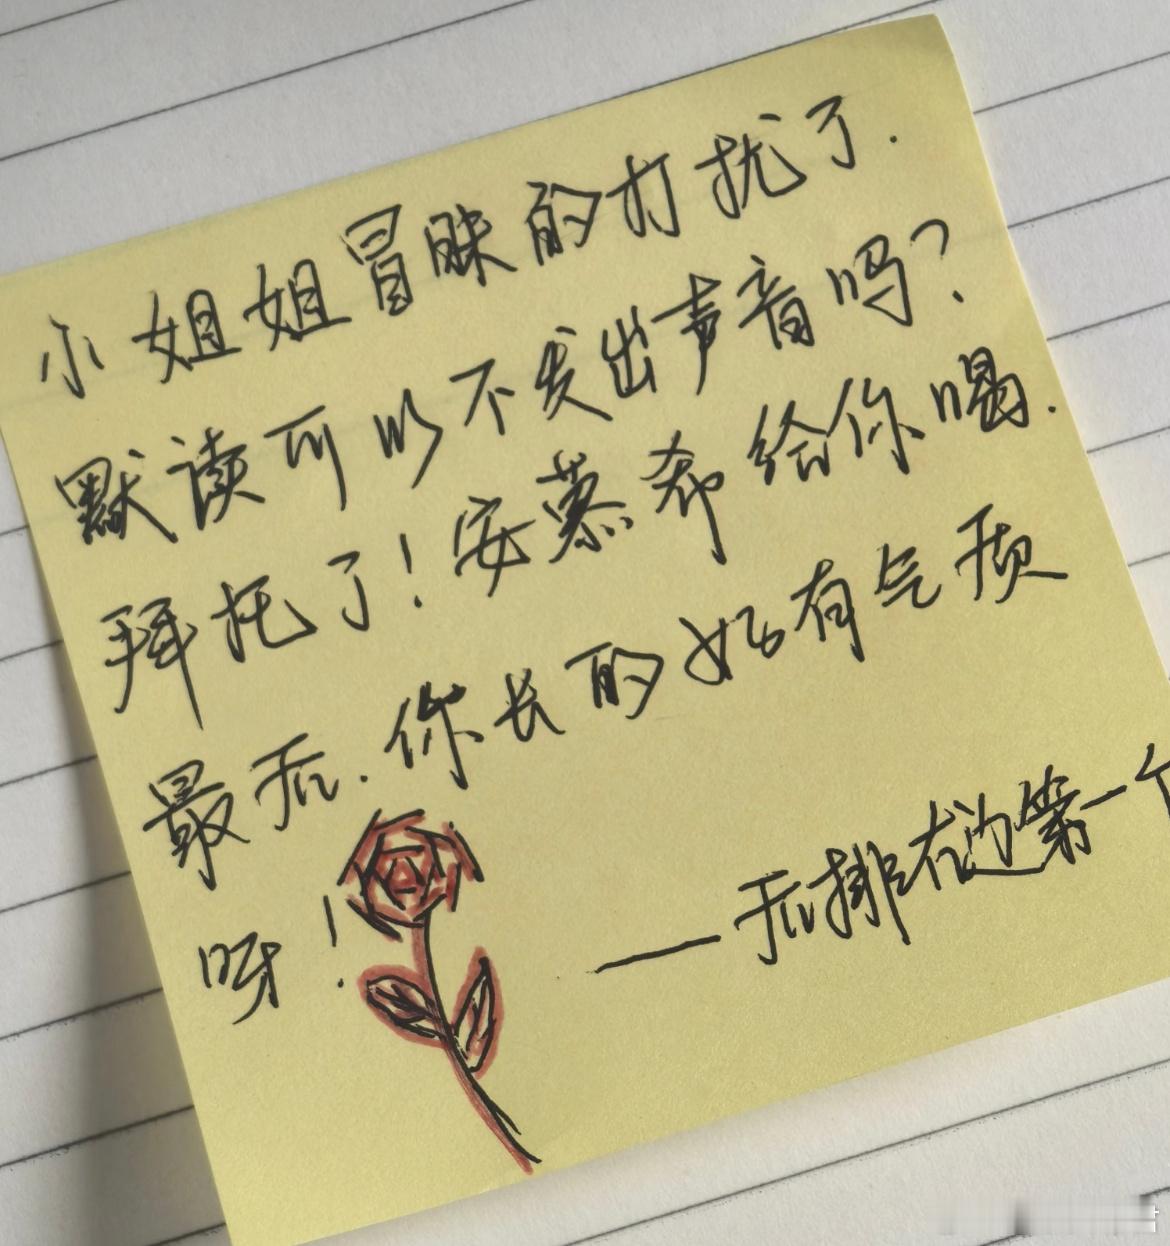 小姐姐冒昧的打扰了.
默读可以不发出声音吗?
拜托了!安慕希给你喝.
最后.你长的好有气质
呀!
——后排右边第一个